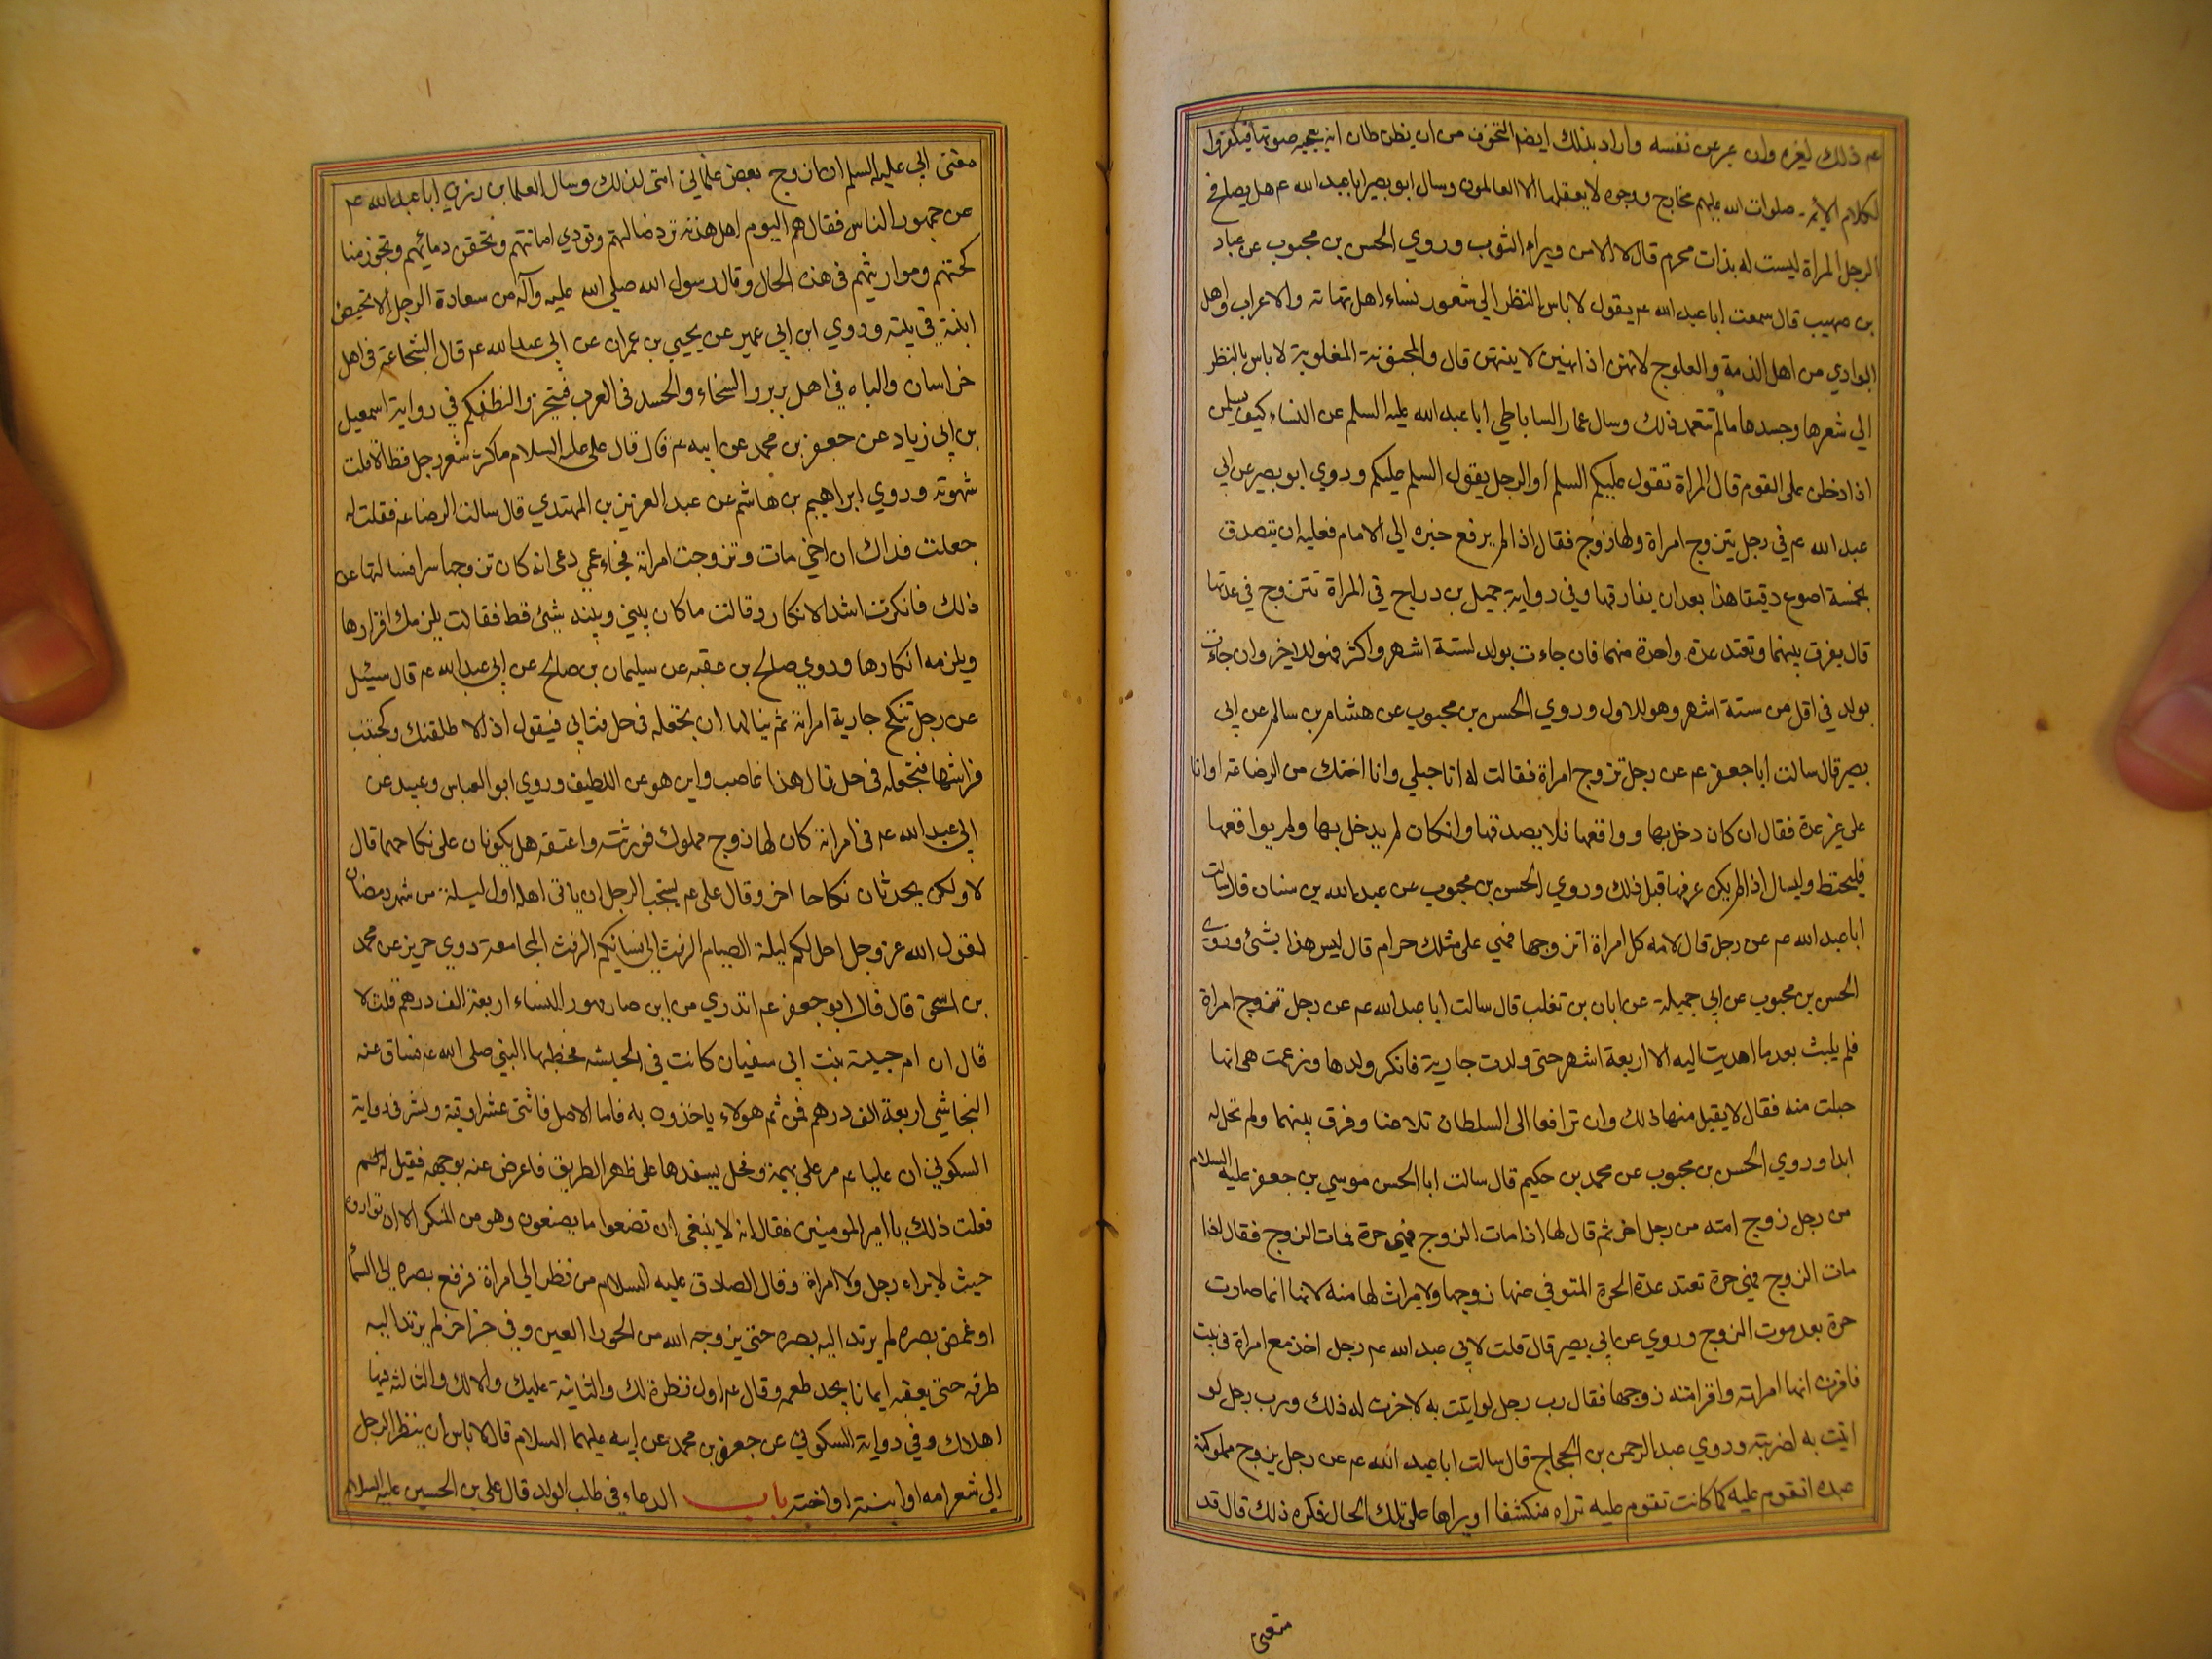 عم ذلك لغيره وان عبر عن نفسه واراد بذلك ايضا التخوف من ان يظن ظان انه يعجبه صوتها فيكفروا
لكلام الائمة صلوات الله عليهم مخارج ووجوه لا يعقلها الا العالمون وسال ابو بصير ابا عبد الله عم هل يصافح
الرجل المراة ليست له بذات محرم قال لا الا من وراء الثوب وروي الحسن بن محبوب عن عباد
بن صهيب قال سمعت ابا عبد الله عم يقول لا باس بالنظر الي شعور نساء اهل تهامة والاعراب واهل
البوادي من اهل الذمة والعلوج لانهن اذا نهين لا ينتهين قال والمجنونة المغلوبة لا باس بالنظر
الي شعرها وجسدها ما لم تتعمد ذلك وسال عمار الساباطي ابا عبد الله عليه السلم عن النساء كيف يسلمن
اذا دخلن على القوم قال المراة تقول عليكم السلم والرجل يقول السلم عليكم وروي ابو بصير عن ابي
عبد الله عم في رجل يتزوج امراة ولها زوج فقال اذا لم يرفع خبره الي الامام فعليه ان يتصدق
بخمسة اصوع دقيقا هذا بعد ان يفارقها وفي رواية جميل بن دراج في المراة تتزوج في عدتها
قال يفرق بينهما وتعتد عدة واحدة منهما فان جاءت بولد لستة اشهر واكثر فهو للاخير وان جاءت
بولد في اقل من ستة اشهر وهو للاول وروي الحسن بن محبوب عن هشام بن سالم عن ابي
بصير قال سالت ابا جعفر عم عن رجل تزوج امراة فقالت له انا حبلي وانا اختك من الرضاعة او انا
على غير عدة فقال ان كان دخل بها وواقعها فلا يصدقها وان كان لم يدخل بها ولم يواقعها
فليحتط وليسال اذا لم يكن عرفها قبل ذلك وروي الحسن بن محبوب عن عبد الله بن سنان قال سالت
ابا عبد الله عم عن رجل قال لامه كل امراة اتزوجها فهي على مثلك حرام قال ليس هذا بشئ وروي
الحسن بن محبوب عن ابي جميلة عن ابان بن تغلب قال سالت ابا عبد الله عم عن رجل تزوج امراة
فلم يلبث بعد ما اهديت اليه الا اربعة اشهر حتى ولدت جارية فانكر ولدها وزعمت هي انها
حبلت منه فقال لا يقبل منها ذلك وان ترافعا الى السلطان تلاعنا وفرق بينهما ولم تحل له
ابدا وروي الحسن بن محبوب عن محمد بن حكيم قال سالت ابا الحسن موسي بن جعفر عليه السلام
من رجل زوج امته من رجل اخر ثم قال لها اذا مات الزوج فهي حرة فمات الزوج فقال اذا
مات الزوج فهي حرة تعتد عدة الحرة المتوفي عنها زوجها ولا ميراث لها منه لانها انما صارت
حرة بعد موت الزوج وروي عن ابي بصير قال قلت لابي عبد الله عم رجل اخذ مع امراة في بيت
فاقرت انها امراته واقر انه زوجها فقال رب رجل لو اتيت به لاجزت له ذلك ورب رجل لو
اتيت به لضربته وروي عبد الرحمن بن الحجاج قال سالت ابا عبد الله عم عن رجل يزوج مملوكته
عبده اتقوم عليه كما كانت تقوم عليه تراه منكشفا او يراها على تلك الحال فكره ذلك قال قد
متعني
متعني ابي عليه السلم ان ازوج بعض غلماني امتي لذلك وسال العلا بن رزين ابا عبد الله عم
عن جمهور الناس فقال هم اليوم اهل هدنة ترد ضالتهم وتودي امانتهم وتحقن دمائهم وتجوز منا
كحتهم وموارثتهم في هذه الحال وقال رسول الله صلي الله عليه وآله من سعادة الرجل الا تحيض
ابنته في بيته وروي ابن ابي عمير عن يحيي بن عمران عن ابي عبد الله عم قال الشجاعة في اهل
خراسان والباه في اهل بربر والسخاء والحسد في العرب فتخيروا لنطفكم في رواية اسمعيل
بن ابي زياد عن جعفر بن محمد عن ابيه عم قال قال علي عليه السلام ما كثر شعر رجل قط الا قلت
شهوته وروي ابراهيم بن هاشم عن عبد العزيز بن المهتدي قال سالت الرضا عم فقلت له
جعلت فداك ان اخي مات وتزوجت امراته فجاء عمي دعى انه كان تزوجها سرا فسالتها عن
ذلك فانكرت اشد الانكار وقالت ما كان بيني وبينه شئ قط فقالت يلزمك اقرارها
ويلزمه انكارها وروي صالح بن عقبه عن سليمان بن صالح عن ابي عبد الله عم قال سئيل
عن رجل ينكح جارية امراته ثم يسالها ان تجعله في حل فتابي فيقول اذا لاطلقنك ويجتنب
فراشها فتجعله في حل قال هذا غاصب واين هو عن اللطيف وروي ابو العباس وعبيد عن
ابي عبد الله عم في امراة كان لها زوج مملوك فورثته واعتقه هل يكونان على نكاحهما قال
لا ولكن يحدثان نكاحا اخر وقال علي عم يستحب للرجل ان ياتي اهله اول ليلة من شهر رمضان
لقول الله عز وجل احل لكم ليلة الصيام الرفث الي نسائكم الرفث المجامعة روي حريز عن محمد
بن اسحق قال قال ابو جعفر عم اتدري من اين صار مهور النساء اربعة الف درهم قلت لا
قال ان ام حبيبة بنت ابي سفيان كانت في الحبشه فخطبها النبي صلى الله عم فساق عنه
النجاشي اربعة الف درهم فمن ثم هولاء ياخذون به فاما الاصل فاثني عشر اوقية ونش في رواية
السكوني ان عليا عم مر على بهيمة وفحل يسفدها على ظهر الطريق فاعرض عنه بوجهه فقيل له لم
فعلت ذلك يا امير المومنين فقال انه لا ينبغي ان تضعوا ما يصنعون وهو من المنكر الا ان تواروه
حيث لا يراه رجل ولا امراة وقال الصادق عليه السلام من نظر الي امراة فرفع بصره الي السماء
او غمض بصره لم يرتد اليه بصره حتى يزوجه الله من الحور العين وفي خبر اخر لم يرتد اليه
طرفه حتى يعقبه ايمانا يجد طعمه وقال عم اول نظرة لك والثانية عليك ولا لك والثالثة فيها
اهلاك وفي رواية السكوني عن جعفر بن محمد عن ابيه عليهما السلام قال لا باس ان ينظر الرجل
الي شعر امه او ابنته او اخته باب الدعاء في طلب الولد قال علي بن الحسين عليه السلام